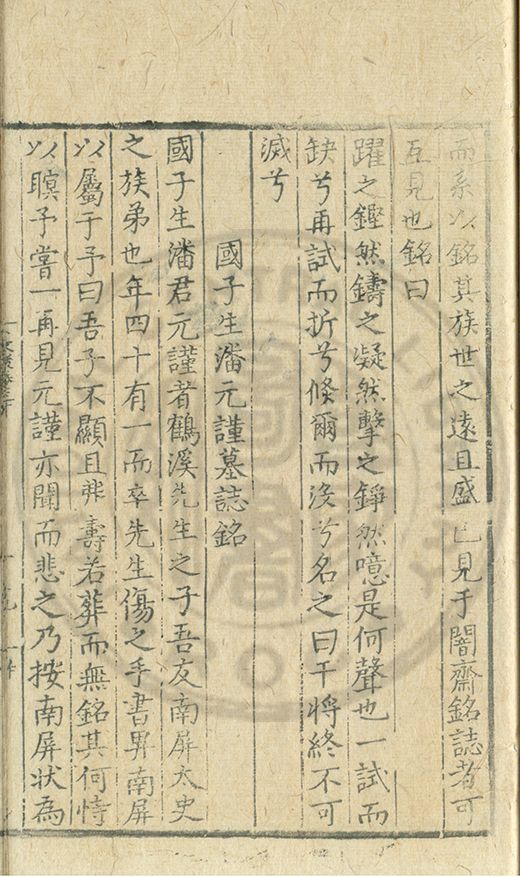 而系以銘其族世之遠且盛已見于闇齋銘誌者可
互見也銘曰
躍之鏗然鑄之凝然擊之錚然噫是何聲也一試而
缺兮再試而折兮倐爾而沒兮名之曰干將終不可
滅兮
國子生潘元謹墓誌銘
國子生潘君元謹者鶴溪先生之子吾友南屏太史
之族弟也年四十有一而卒先生傷之手書畀南屏
以屬于予曰吾子不顯且非壽若葬而無銘其何恃
以瞑予嘗一再見元謹亦聞而悲之乃按南屏狀為